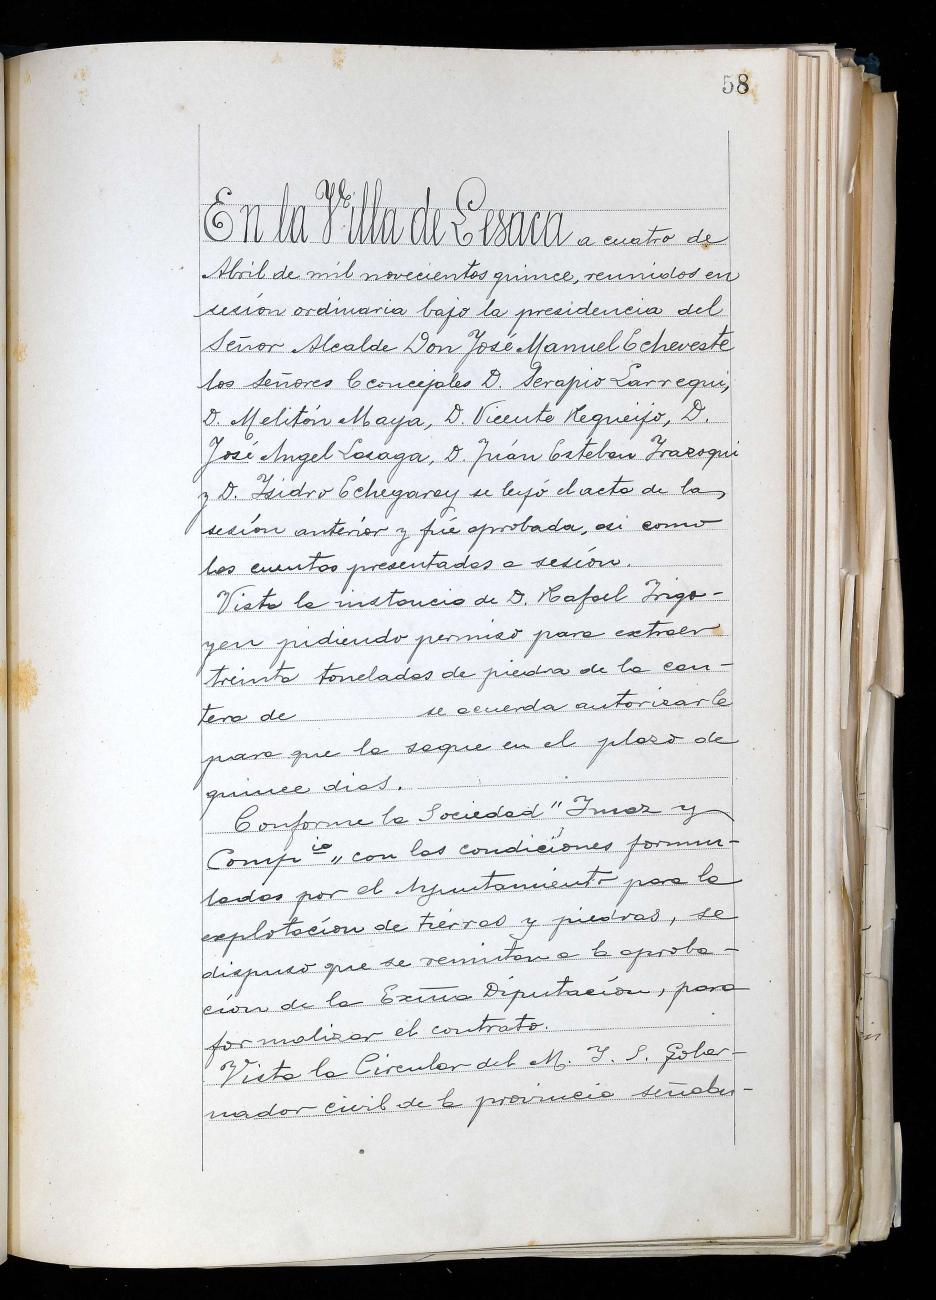 58
En la Villa de Lesaca a cuatro de
Abril de mil novecientos quince, reunidos en
sesión ordinaria bajo la presidencia del
Señor Alcalde Don José Manuel Echeveste
los Señores Cconcejales D. Serapio Larregui,
D. Melitón Maya, D. Vicente Requeijo, D.
José Angel Lasaga, D. Juán Esteban Irazoqui
y D. Isidro Echegaray se leyó el acta de la
sesión anterior y fué aprobada, asi como
las cuentas presentadas a sesión.
Vista la instancia de D. Rafael Irigo-
yen pidiendo permiso para extraer
treinta toneladas de piedra de la can-
tera de se acuerda autorizarle
para que la saque en el plazo de
quince dias.
Conforme la Sociedad "Imaz y
Compia" con las condiciones formu-
ladas por el Ayuntamiento para la
explotación de tierras y piedras, se
dispuso que se remitan a la aproba-
ción de la Exma Diputación, para
formalizar el contrato.
Vista la Circular del M. I. S. Gober-
nador civil de la provincia señalan-